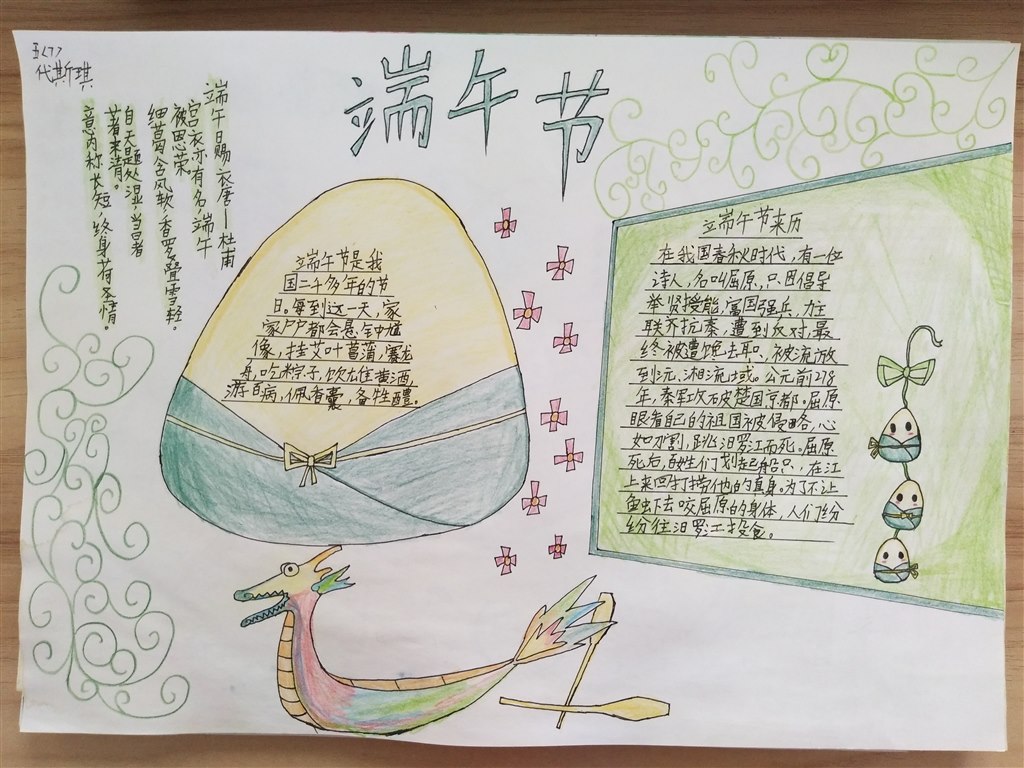 五<7>
代斯琪
端午节
端午日赐衣唐——杜甫
宫衣亦有名,端午
被恩荣。
细葛含风软,香罗叠雪轻。
自天题处湿,当暑
著来清。
意内称长短,终身荷圣情。
端午节是我
国二千多年的节
日。每到这一天,家
家户户都会悬钟馗
像,挂艾叶菖蒲,赛龙
舟,吃粽子,饮雄黄酒,
游百病,佩香囊,备牲醴。
端午节来历
在我国春秋时代,有一位
诗人,名叫屈原,只因倡导
举贤授能,富国强兵,力主
联齐抗秦,遭到反对,最
终被遭馋去职、被流放
到沅、湘流域。公元前278
年,秦军攻破楚国京都。屈原
眼看自己的祖国被侵略,心
如刀割,跳汨罗江而死。屈原
死后,百姓们划起船只,在江
上来回打捞他的真身。为了不让
鱼虫下去咬屈原的身体,人们纷
纷往汨罗江投食。